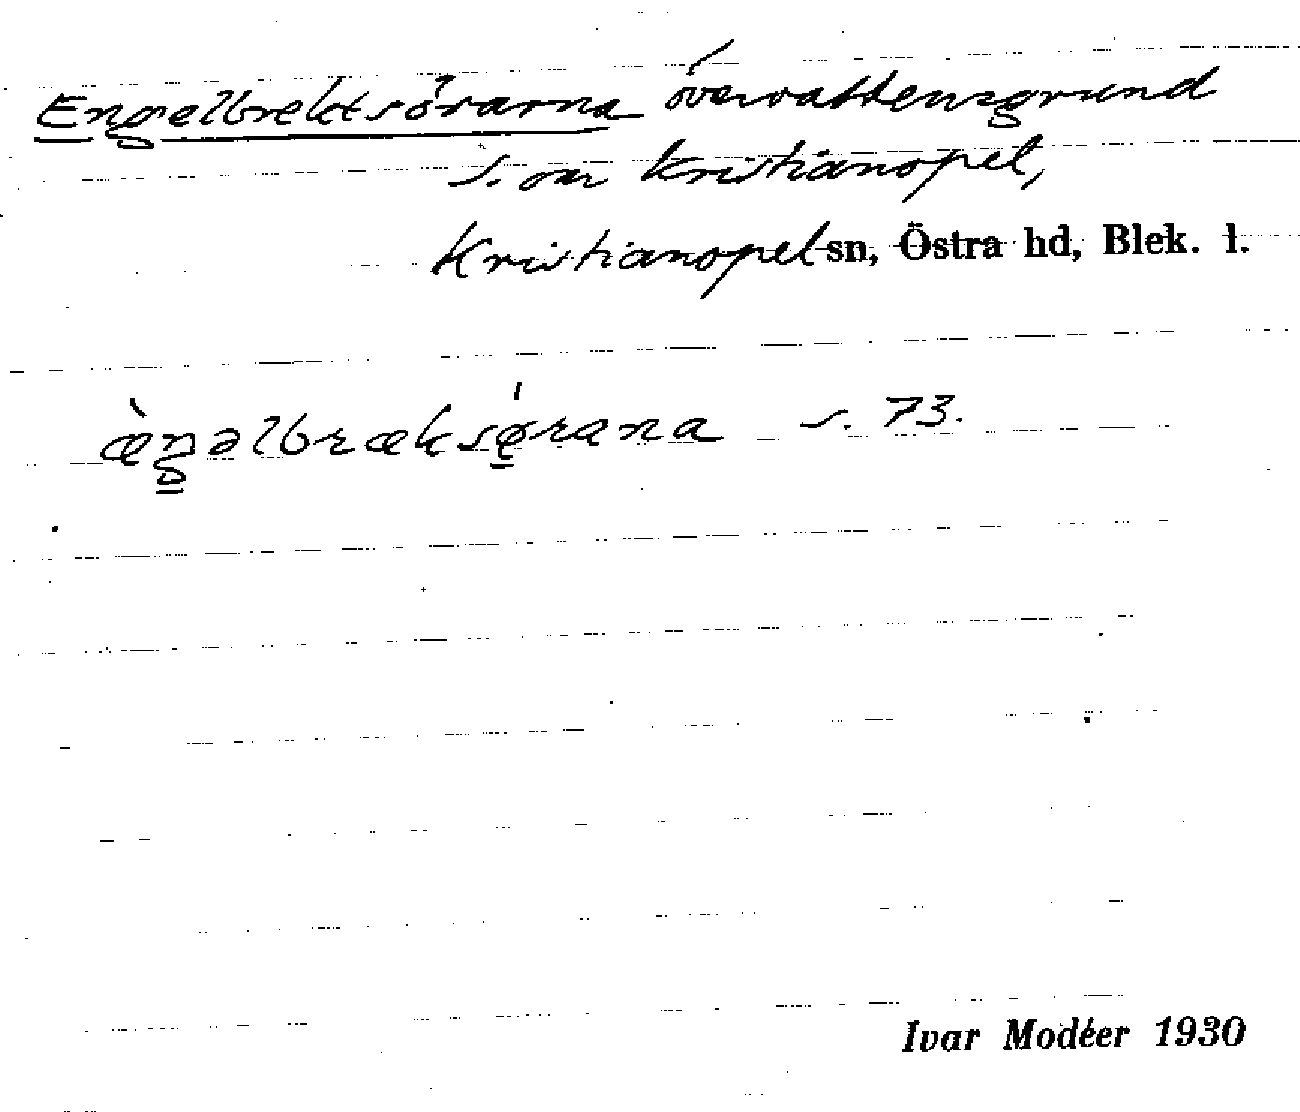 Engelbrektsörarna övervattensgrund
s. om Kristianopel,
Kristianopel sn, Östra hd, Blek. l.
æ̀ŋəlbræksǿ̱rana s. 73.
Ivar Modéer 1930